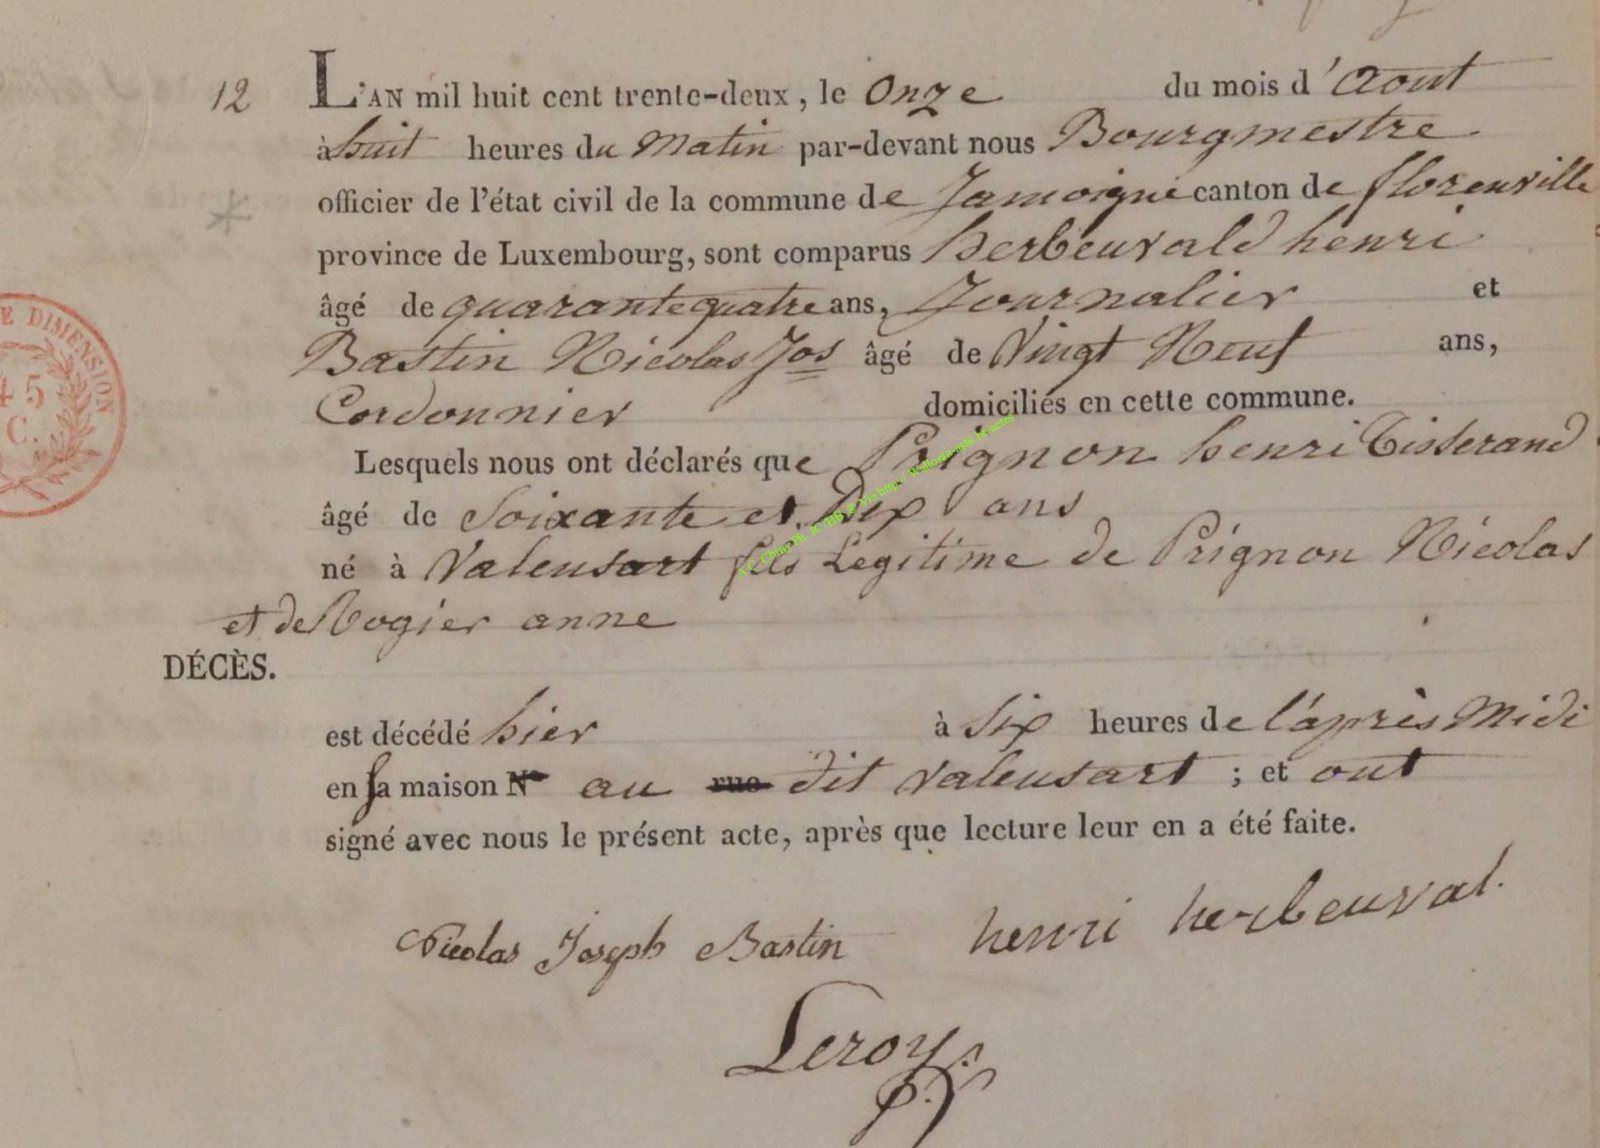 12 L'AN mil huit cent trente-deux, le Onze du mois d'Aout
à huit heures du Matin par-devant nous Bourgmestre
officier de l'état civil de la commune de Jamoigne canton de florenville
province de Luxembourg, sont comparus herbeuvald henri
âgé de quarante quatre ans, Journalier et
Bastin Nicolas Jos âgé de Vingt Neuf ans,
Cordonnier domiciliés en cette commune.
Lesquels nous ont déclarés que Prignon henri Tisserand
âgé de Soixante et Dix ans
né à Valensart fils Legitime de Prignon Nicolas
et de Rogier anne
DÉCÈS.
est décédé hier à Six heures de l'après Midi
en sa maison N° au rue dit valensart ; et ont
signé avec nous le présent acte, après que lecture leur en a été faite.
Nicolas Joseph Bastin henri herbeuval.
Leroy
E DIMENSION
45
C.